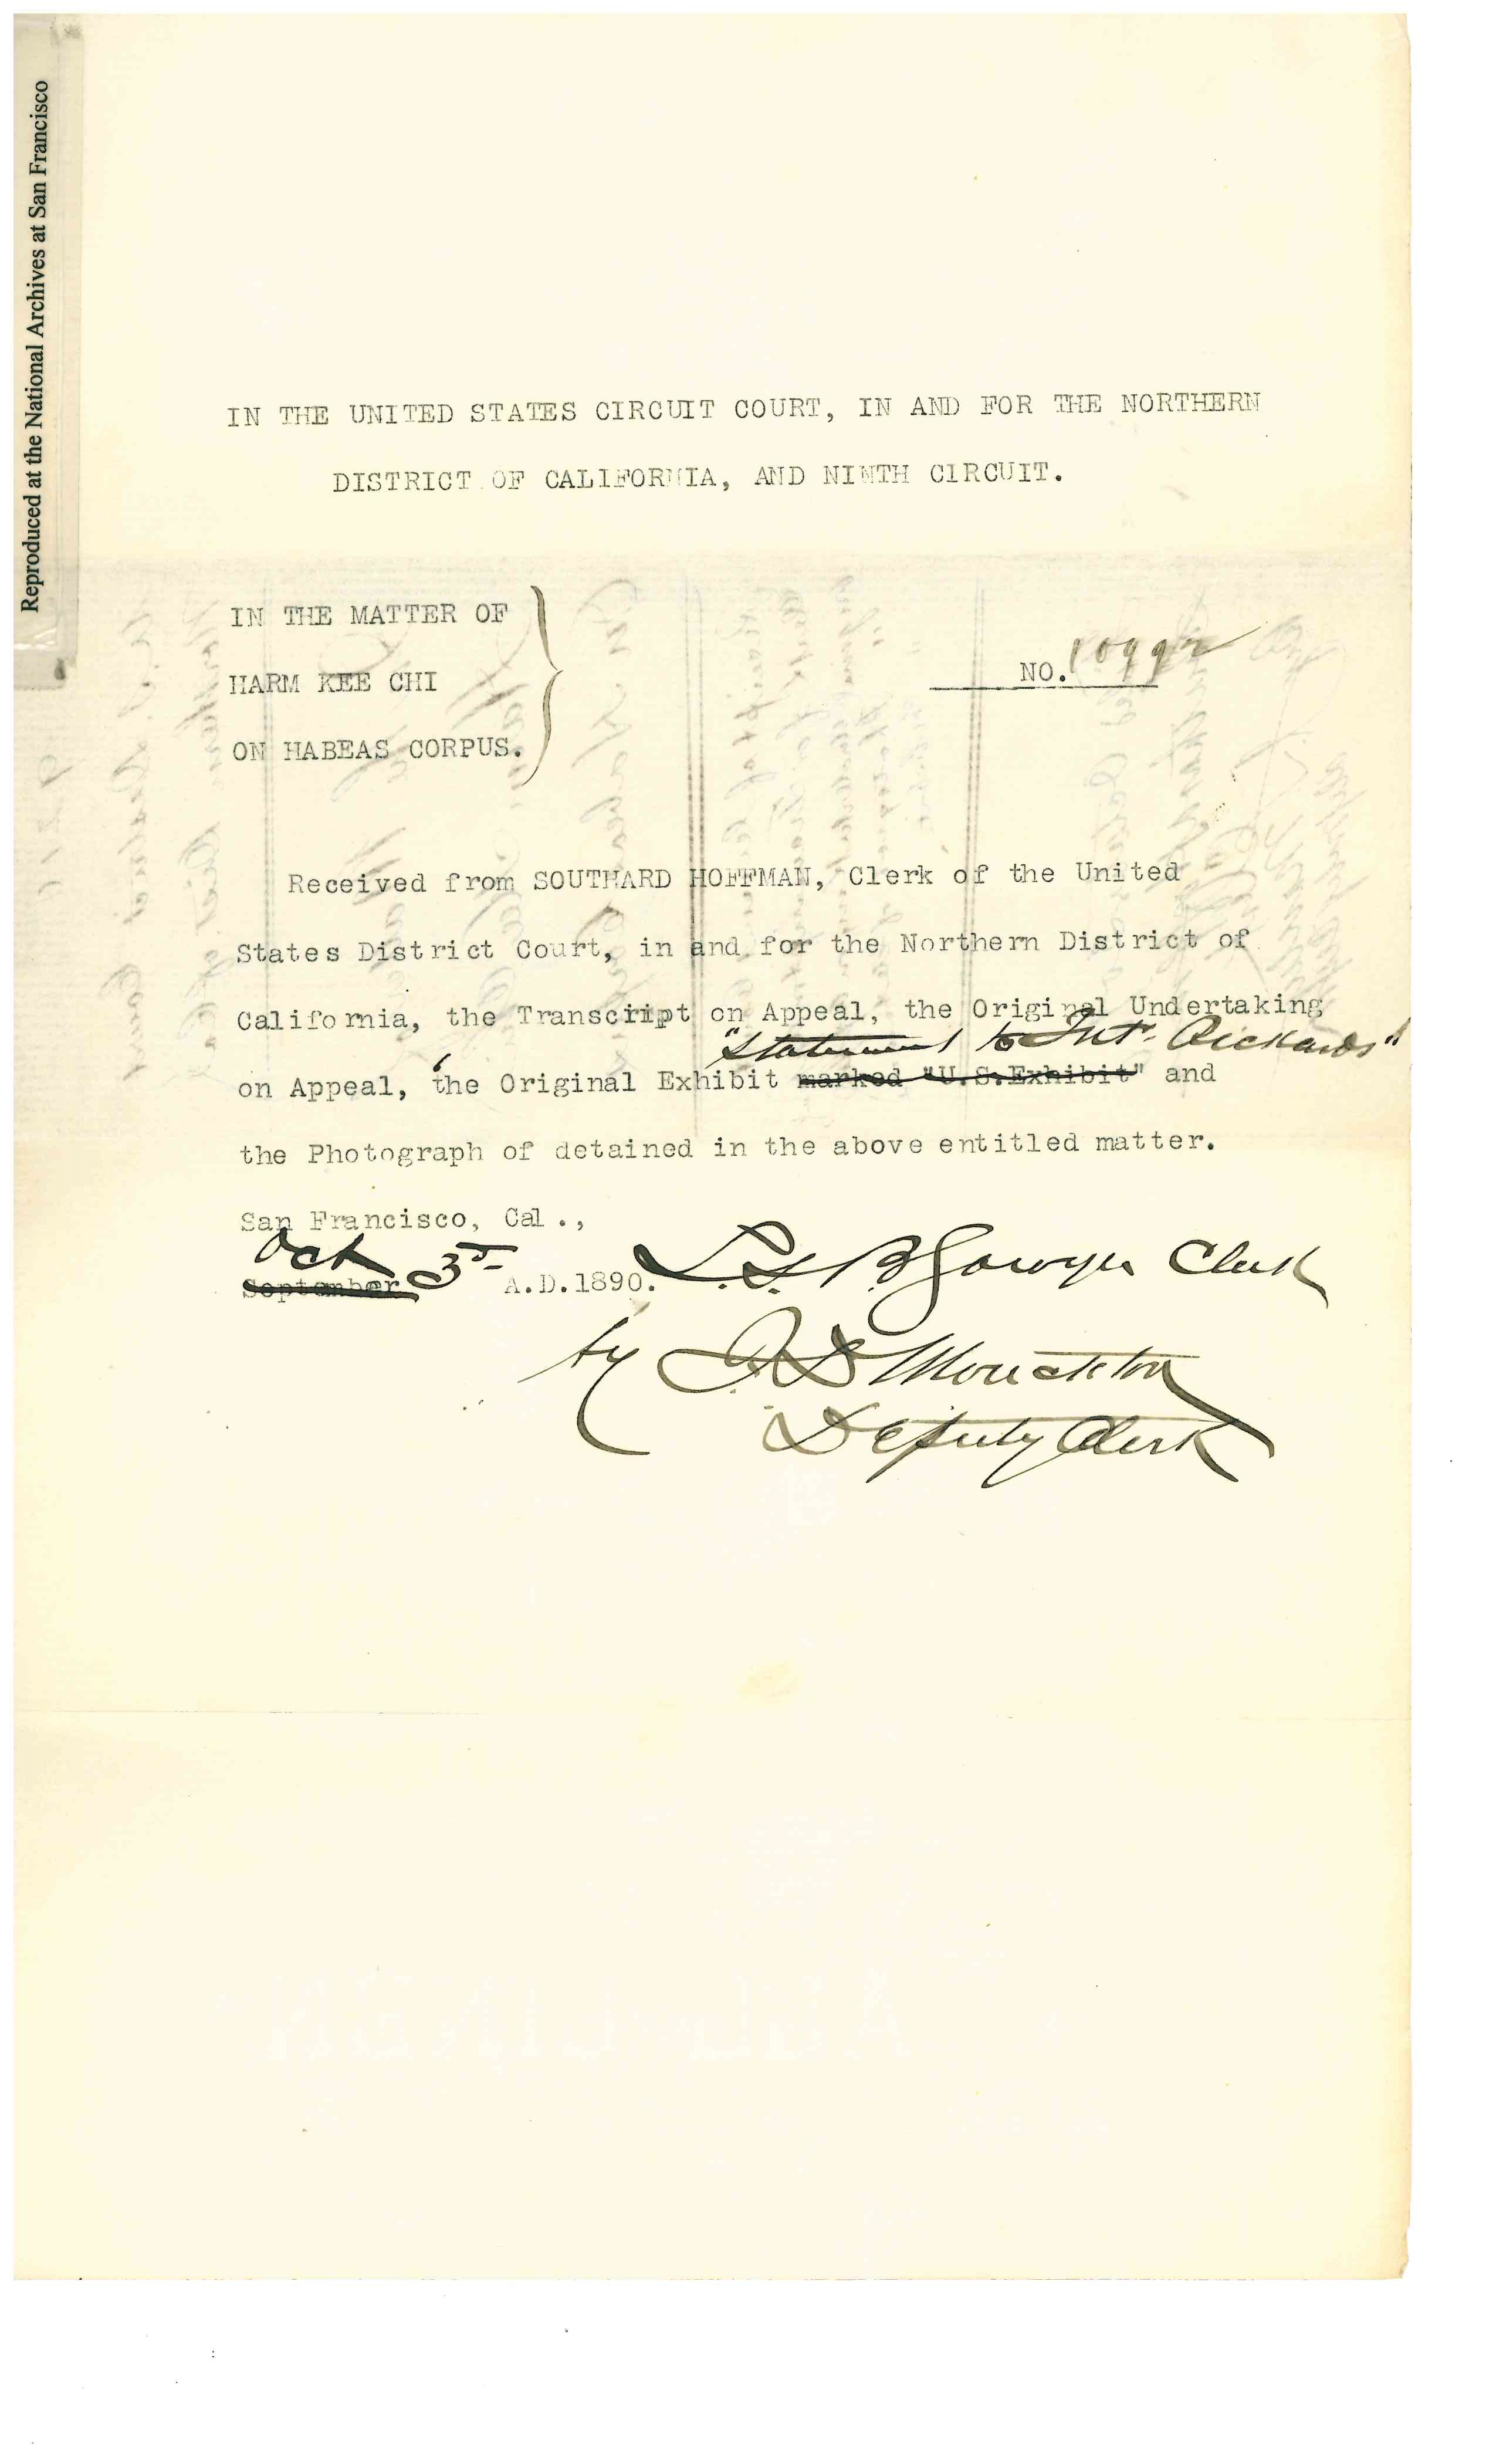 Reproduced at the National Archives at San Francisco
IN THE UNITED STATES CIRCUIT COURT, IN AND FOR THE NORTHERN
DISTRICT OF CALIFORNIA, AND NINTH CIRCUIT.
IN THE MATTER OF
HARM KEE CHI
ON HABEAS CORPUS.
NO. 10992
Received from SOUTHARD HOFFMAN, Clerk of the United
States District Court, in and for the Northern District of
California, the Transcript on Appeal, the Original Undertaking
"Statement to Int. Rickards"
on Appeal, the Original Exhibit marked "U.S.Exhibit" and
the Photograph of detained in the above entitled matter.
San Francisco, Cal.,
Oct
September 3d A.D.1890. L.S.B. Sawyer Clerk
by J.D. Monckton
Deputy Clerk